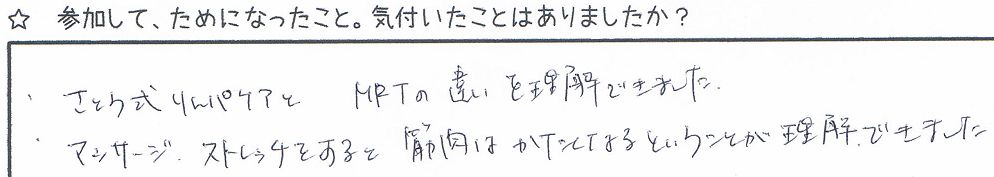 ☆ 参加して、ためになったこと。気付いたことはありましたか?
・さとう式リンパケアと MRTの違いを理解できました。
・マッサージ、ストレッチをすると筋肉はかたくなるということが理解できました